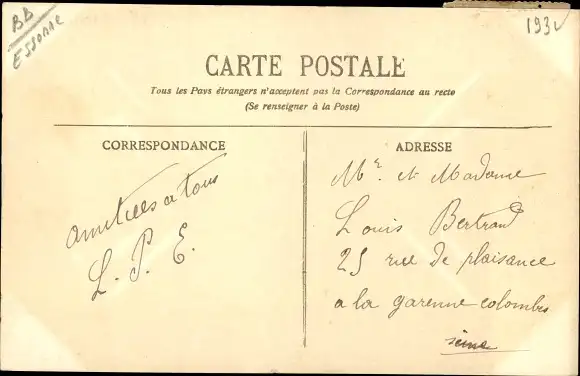 BB
ESSONNE
1932
CARTE POSTALE
Tous les Pays étrangers n'acceptent pas la Correspondance au recto
(Se renseigner à la Poste)
CORRESPONDANCE
amitiées a tous
L. P. E.
ADRESSE
Mr. et Madame
Louis Bertrand
25 rue de plaisance
a la garenne colombes
seine